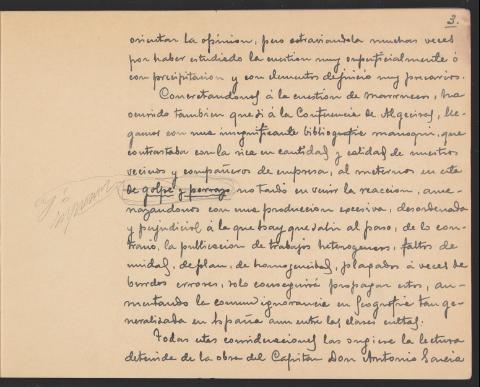 3.
orientar la opinion, pero estraviandola muchas veces
por haber estudiado la cuestion muy superficialmente ó
con precipitacion y con elementos de juicio muy precarios.
Concretandonos á la cuestión de marruecos, ha
ocurrido tambien que si á la Conferencia de Algeciras, lle-
gamos con una insignificante bibliografia marroqui, que
contrastaba con la rica en cantidad y calidad de nuestros
vecinos y compañeros de empresa, al meternos en este
de golpe y porrazo no tardó en venir la reaccion, ame-
nazandonos con una produccion excesiva, desordenada
y perjudicial á la que hay que salir al paso, de lo con-
trario, la publicacion de trabajos heterogeneos, faltos de
unidad, de plan, de homogeneidad, plagados á veces de
burdos errores, solo conseguirá propagar estos, au-
mentando la comun ignorancia en Geografia tan ge-
neralizada en España aun entre las clases cultas.
Todas estas consideraciones las sugiere la lectura
detenida de la obra del Capitan Don Antonio García